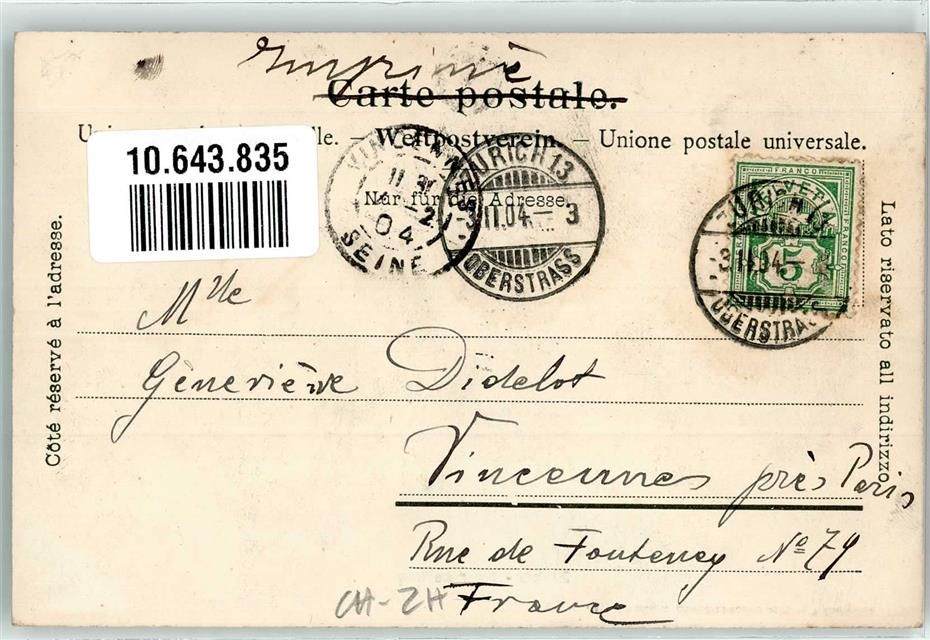 Imprimé
Carte postale.
lle. – Weltpostverein. – Unione postale universale.
10.643.835
Nur für die Adresse.
Côté réservé à l'adresse.
Lato riservato all indirizzo.
VINCENNES
-2
04
SEINE
ZÜRICH 13
3 II.04.– 3
OBERSTRASS
FRANCO
HELVETIA
FRANCO
5
ZÜRICH 13
3 II.04.–
OBERSTRASS
Mlle
Geneviève Didelot
Vincennes près Paris
Rue de Fontenay No 79
France
CH-ZH